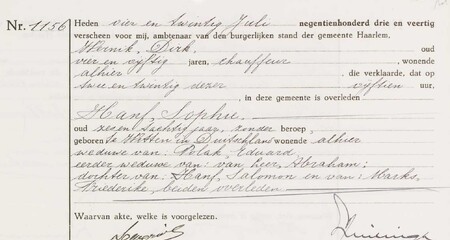 Nr. 1156
Heden vier en twintig Juli negentienhonderd drie en veertig
verscheen voor mij, ambtenaar van den burgerlijken stand der gemeente Haarlem.
Wernik, Dirk oud
vier en vijftig jaren, chauffeur, wonende
alhier, die verklaarde, dat op
twee en twintig dezer vijftien uur,
, in deze gemeente is overleden
Hanf, Sophie
oud zeven tachtig jaar, zonder beroep,
geboren te Witten in Duitschland wonende alhier
weduwe van: Polak, Eduard
eerder weduwe van: van Lier, Abraham;
dochter van: Hanf, Salomon en van: Marks,
Friederike, beiden overleden
Waarvan akte, welke is voorgelezen.